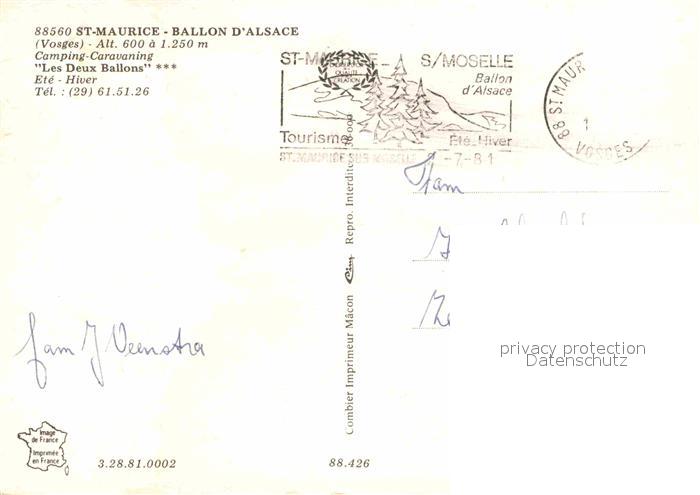 88560 ST-MAURICE - BALLON D'ALSACE
(Vosges) - Alt. 600 à 1.250 m
Camping-Caravaning
"Les Deux Ballons" ***
Eté - Hiver
Tél. : (29) 61.51.26
ST-MAURICE S/MOSELLE
Ballon
d'Alsace
QUALITÉ
CRÉATION
Tourisme Eté-Hiver
ST-MAURICE SUR MOSELLE -7-81
88 ST MAUR
1
VOSGES
Fam
J
fam J Veenstra
Combier Imprimeur Mâcon Cim Repro. Interdite
privacy protection
Datenschutz
Image
de France
Imprimée
en France
3.28.81.0002
88.426